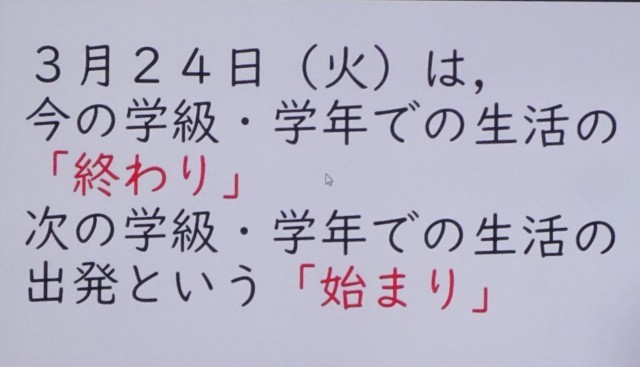 ３月２４日（火）は，
今の学級・学年での生活の
「終わり」
次の学級・学年での生活の
出発という「始まり」